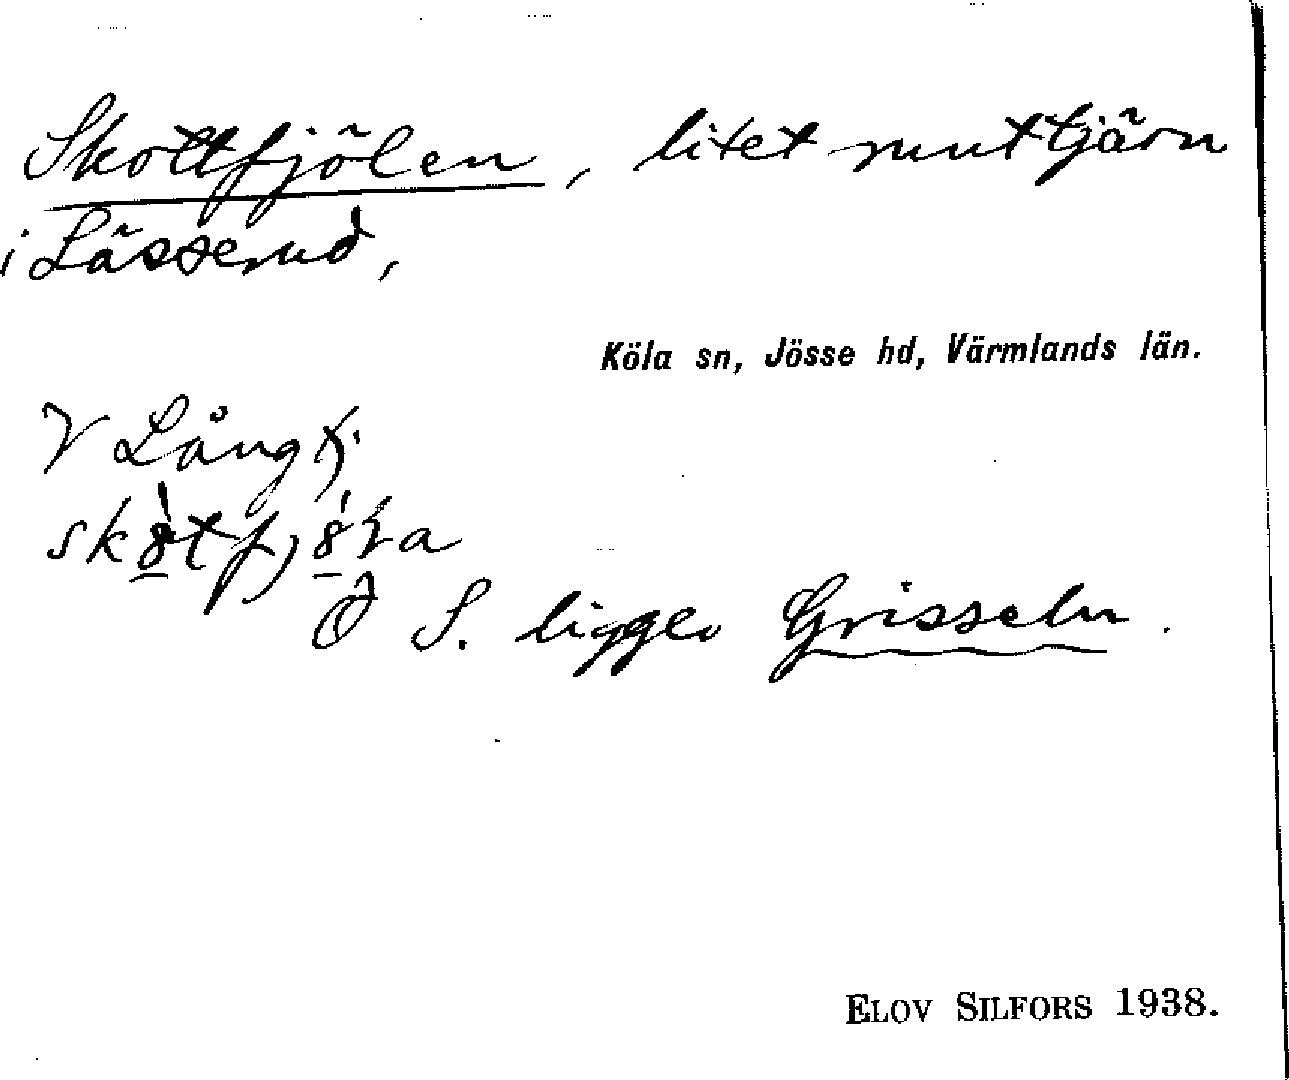 Skottfjölen, litet runt tjärn
i Lässerud,
Köla sn, Jösse hd, Värmlands län.
V Långtj.
Ö S. ligger Grisseln.
ELOV SILFORS 1938.